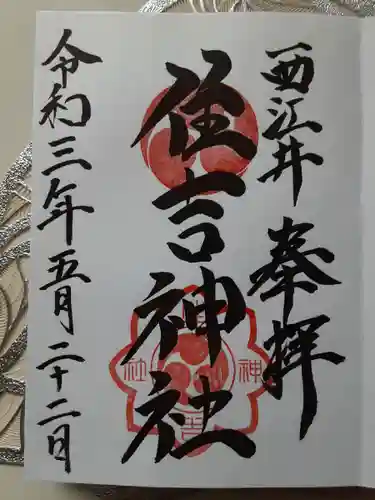 西江井
奉拝
住吉神社
令和三年五月二十二日